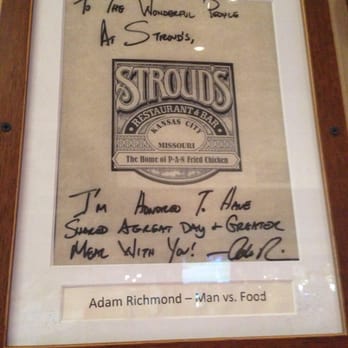 To The Wonderful People
At Stroud's,
STROUD'S
RESTAURANT & BAR
KANSAS CITY
MISSOURI
The Home of P-A-N Fried Chicken
I'm Honored To Have
Shared A Great Day & Greater
Meal With You!
Adam Richmond – Man vs. Food